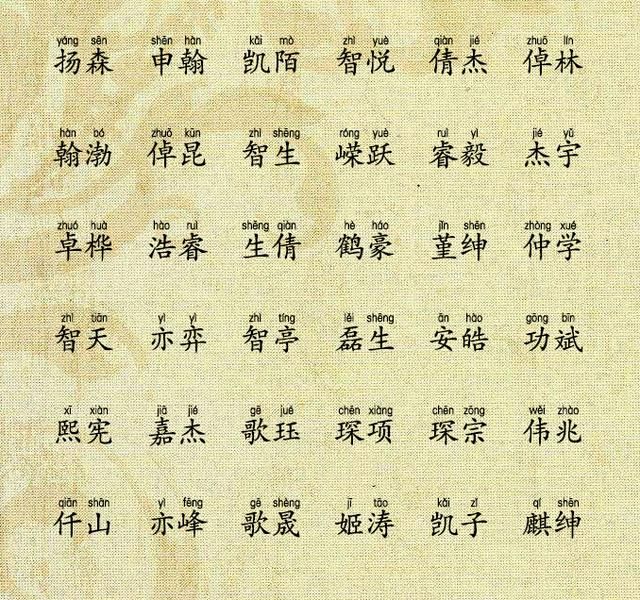 yáng sēn shēn hàn kǎi mò zhì yuè qiàn jié zhuō lín
扬森 申翰 凯陌 智悦 倩杰 倬林
hàn bó zhuō kūn zhì shēng róng yuè ruì yì jié yǔ
翰渤 倬昆 智生 嵘跃 睿毅 杰宇
zhuó huà hào ruì shēng qiàn hè háo jǐn shēn zhòng xué
卓桦 浩睿 生倩 鹤豪 堇绅 仲学
zhì tiān yì yì zhì tíng lěi shēng ān hào gōng bīn
智天 亦弈 智亭 磊生 安皓 功斌
xī xiàn jiā jié gē jué chēn xiàng chēn zōng wěi zhào
熙宪 嘉杰 歌珏 琛项 琛宗 伟兆
qiān shān yì fēng gē shèng jī tāo kǎi zǐ qí shēn
仟山 亦峰 歌晟 姬涛 凯子 麒绅